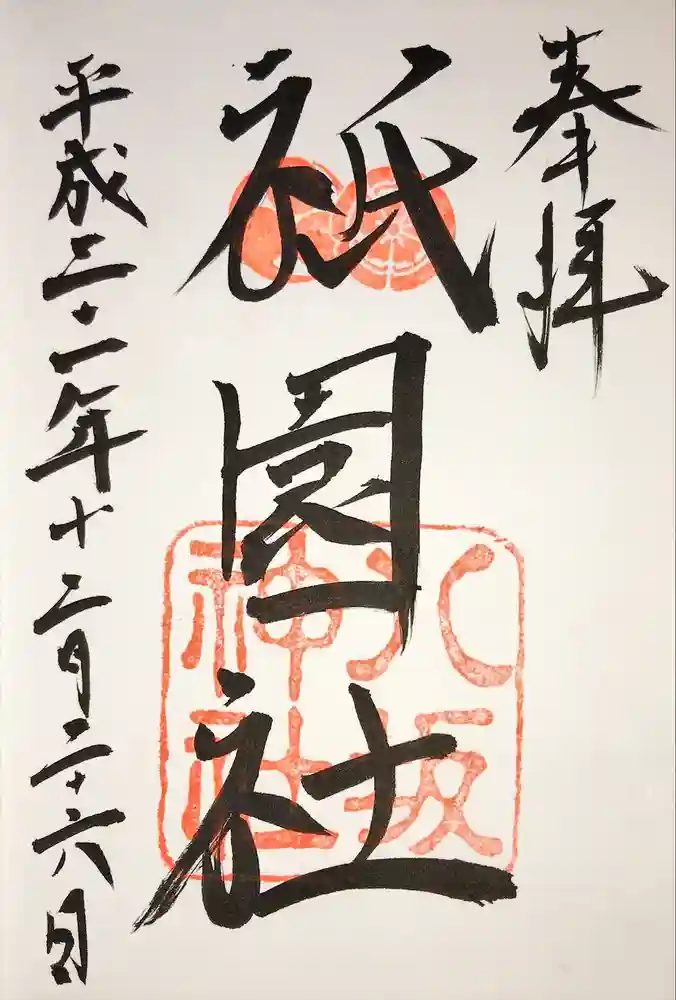 奉拝
祇園社
平成二十一年十二月二十六日
八坂
神社